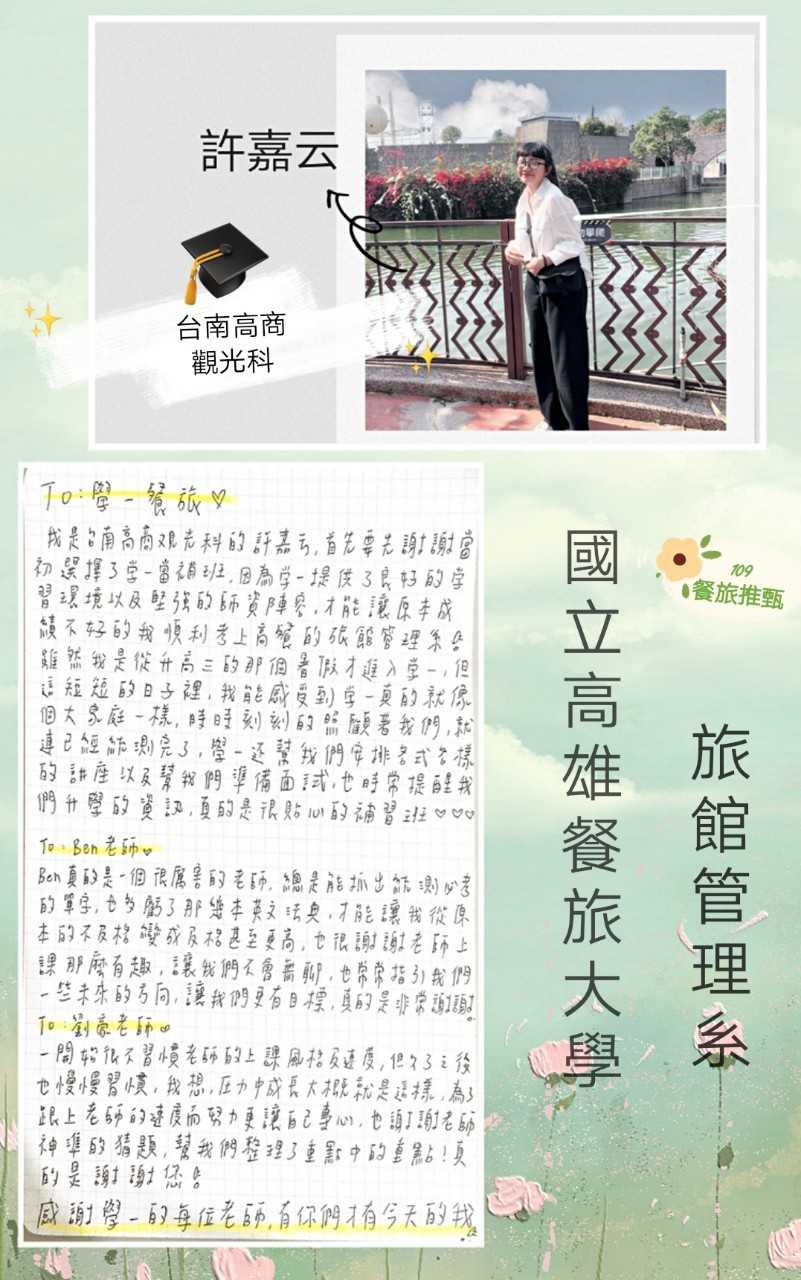 許嘉云
台南高商
觀光科
To:學一餐旅♡
我是台南高商观光科的許嘉云,首先要先謝謝當
初選擇了学一當補班,因為学一提供了良好的学
習環境以及堅強的師資陣容,才能讓原本成
績不好的我順利考上高餐的旅館管理系。
雖然我是從升高三的那個暑假才進入学一,但
這短短的日子裡,我能感受到学一真的就像
個大家庭一樣,時時刻刻的照顧著我們,就
連已經統測完了,學一还幫我們安排各式各樣
的講座以及幫我們準備面試,也時常提醒我
們升學的資訊,真的是很貼心的補習班♡♡♡
To:Ben老師♡
Ben真的是一個很厲害的老師,總是能抓出統測必考
的單字,也多虧了那幾本英文法典,才能讓我從原
本的不及格變成及格甚至更高,也很謝謝老師上
課那麼有趣,讓我們不會無聊,也常常指引我們
一些未來的方向,讓我們更有目標,真的是非常謝謝!
To:劉豪老師♡
一開始很不習慣老師的上課風格及速度,但久了之後
也慢慢習慣,我想,压力中成長大概就是這樣,為了
跟上老師的速度而努力更讓自己專心,也謝謝老師
神準的猜題,幫我們整理了重點中的重點!真
的是謝謝您。
感謝學一的每位老師,有你們才有今天的我
國立高雄餐旅大學
109
餐旅推甄
旅館管理系